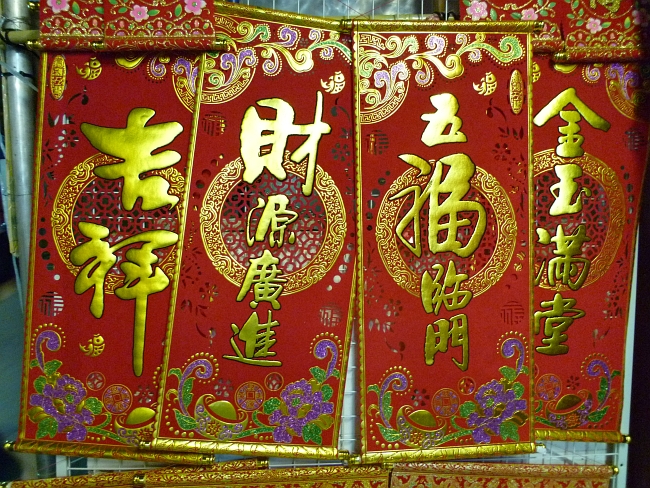 吉祥
財源廣進
五福臨門
金玉滿堂